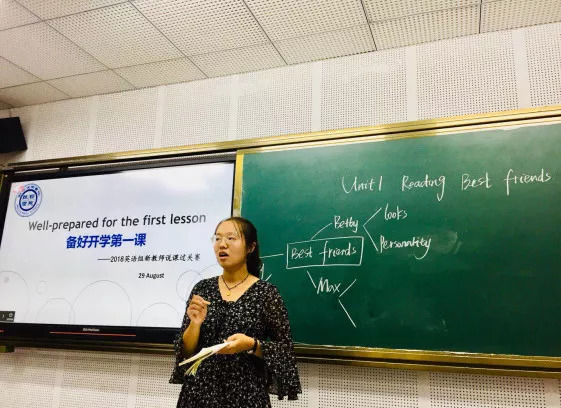 Well-prepared for the first lesson
备好开学第一课
——2018英语组新教师说课过关赛
29 August
Unit 1 Reading Best friends
Betty
looks
Personality
Best friends
Max